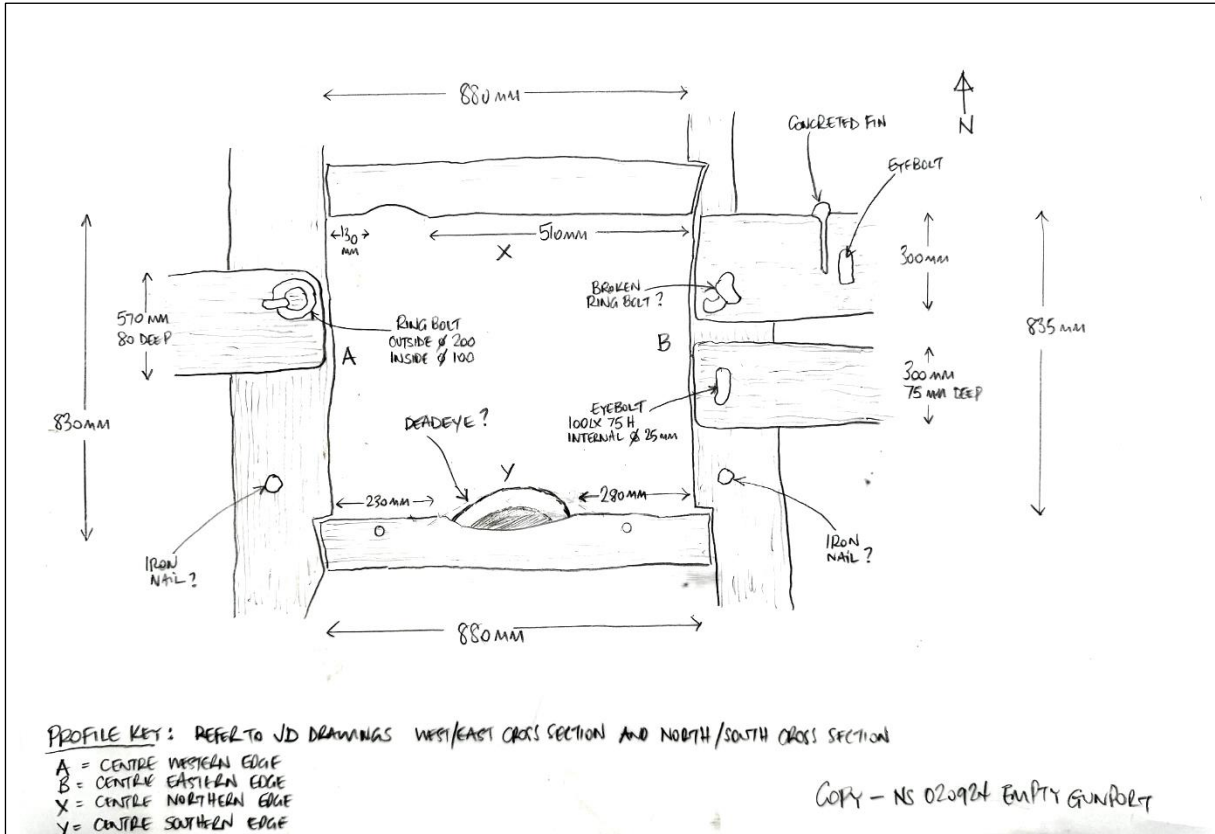 880MM
N
CONCRETED FIN
EYEBOLT
130
MM
510MM
X
300MM
BROKEN
RING BOLT?
570MM
80 DEEP
RING BOLT
OUTSIDE ø 200
INSIDE ø 100
A
B
835MM
830MM
300MM
75MM DEEP
EYEBOLT
100L X 75 H
INTERNAL ø 25MM
DEADEYE?
Y
230MM
280MM
IRON
NAIL?
IRON
NAIL?
880MM
PROFILE KEY: REFER TO JD DRAWINGS WEST/EAST CROSS SECTION AND NORTH/SOUTH CROSS SECTION
A = CENTRE WESTERN EDGE
B = CENTRE EASTERN EDGE
X = CENTRE NORTHERN EDGE
Y = CENTRE SOUTHERN EDGE
COPY - NS 020924 EMPTY GUNPORT